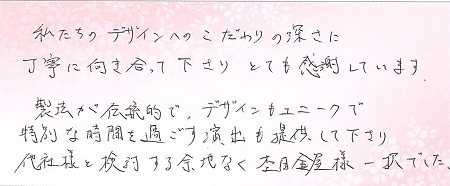 私たちのデザインへのこだわりの深さに
丁寧に向き合って下さり とても感謝しています.
製法が伝統的で、デザインもユニークで
特別な時間を過ごす演出も提供して下さり
他社様と検討する余地なく杢目金屋様一択でした.